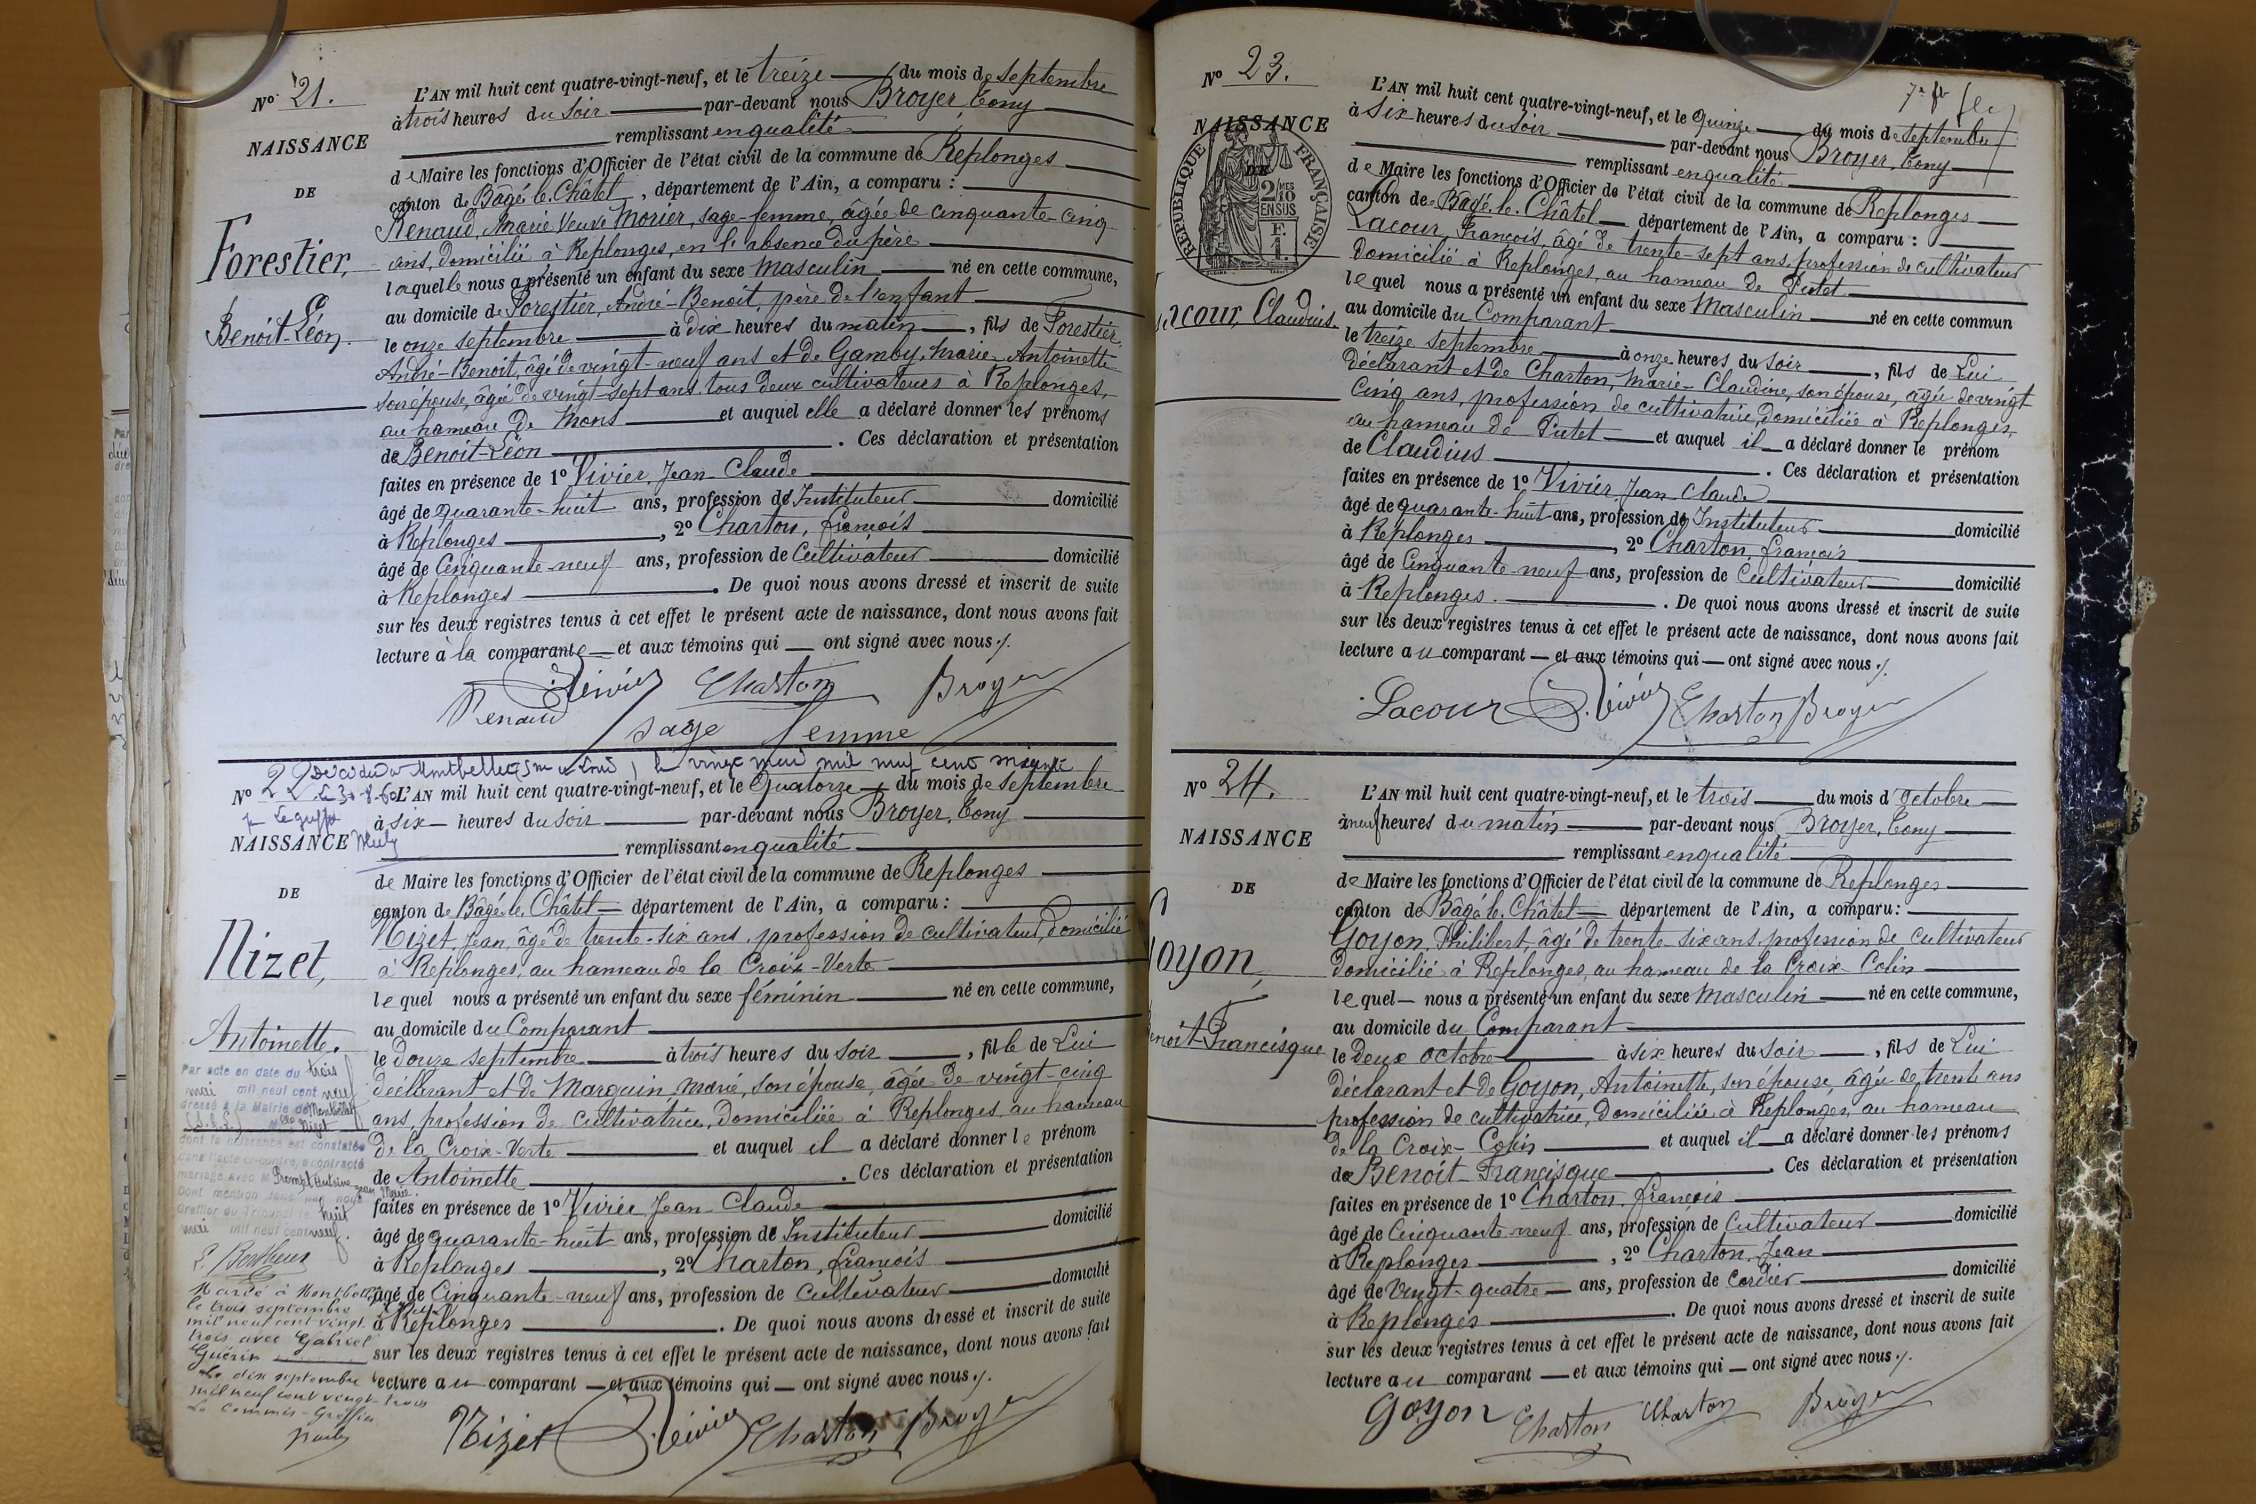 No 21.
NAISSANCE
DE
Forestier,
Benoit-Léon.
L'AN mil huit cent quatre-vingt-neuf, et le treize du mois de septembre
à trois heures du soir par-devant nous Broyer, Tony
remplissant en qualité
de Maire les fonctions d'Officier de l'état civil de la commune de Replonges
canton de Bâgé-le-Châtel, département de l'Ain, a comparu :
Renaud, Marie Veuve Morier, sage-femme, âgée de cinquante-cinq
ans, domiciliée à Replonges, en l'absence du père
laquelle nous a présenté un enfant du sexe masculin né en cette commune,
au domicile de Forestier, André-Benoit, père de l'enfant
le onze septembre à dix heures du matin, fils de Forestier,
André-Benoit, âgé de vingt-neuf ans et de Gamby, Marie-Antoinette
son épouse, âgée de vingt-sept ans tous deux cultivateurs à Replonges,
au hameau de Mons et auquel elle a déclaré donner les prénoms
de Benoit-Léon . Ces déclaration et présentation
faites en présence de 1º Vivier, Jean-Claude
âgé de quarante-huit ans, profession d'Instituteur domicilié
à Replonges, 2º Charton, françois
âgé de Cinquante-neuf ans, profession de Cultivateur domicilié
à Replonges . De quoi nous avons dressé et inscrit de suite
sur les deux registres tenus à cet effet le présent acte de naissance, dont nous avons fait
lecture à la comparante et aux témoins qui ont signé avec nous ./.
Vivier Charton Broyer
Renaud sage femme
Décédée à Montbellet le vingt mil neuf cent soixante
No 22
NAISSANCE
DE
Nizet,
Antoinette.
L'AN mil huit cent quatre-vingt-neuf, et le Quatorze du mois de septembre
à six heures du soir par-devant nous Broyer, Tony
remplissant en qualité
de Maire les fonctions d'Officier de l'état civil de la commune de Replonges
canton de Bâgé-le-Châtel département de l'Ain, a comparu :
Nizet, Jean, âgé de trente-six ans, profession de cultivateur, domicilié
à Replonges, au hameau de la Croix-Verte
lequel nous a présenté un enfant du sexe féminin né en cette commune,
au domicile du Comparant
le Douze septembre à trois heures du soir, fille de Lui
déclarant et de Marguin, Marie, son épouse, âgée de vingt-cinq
ans, profession de cultivatrice, domiciliée à Replonges, au hameau
de la Croix-Verte et auquel il a déclaré donner le prénom
de Antoinette . Ces déclaration et présentation
faites en présence de 1º Vivier Jean-Claude
âgé de quarante-huit ans, profession d'Instituteur domicilié
à Replonges, 2º Charton, françois
âgé de Cinquante-neuf ans, profession de cultivateur domicilié
à Replonges . De quoi nous avons dressé et inscrit de suite
sur les deux registres tenus à cet effet le présent acte de naissance, dont nous avons fait
lecture au comparant et aux témoins qui ont signé avec nous ./.
Nizet Vivier Charton Broyer
Par acte en date du trois
mai mil neuf cent neuf
dressé à la Mairie de Montbellet
(S. & L.) Melle Nizet
dont la naissance est constatée
dans l'acte ci-contre, a contracté
mariage avec M Antoine
Jean Marie.
Dont mention faite par nous
Greffier du Tribunal le huit
mai mil neuf cent neuf.
Marié à Montbellet
le trois septembre
mil neuf cent vingt
trois avec Gabriel
Guérin
Le dix septembre
mil neuf cent vingt-trois
Le Commis-Greffier
No 23.
NAISSANCE
DE
RÉPUBLIQUE FRANÇAISE
2/10 MES
EN SUS
F.
1.
Lacour, Claudius
L'AN mil huit cent quatre-vingt-neuf, et le quinze du mois de septembre
à six heures du soir par-devant nous Broyer, Tony
remplissant en qualité
de Maire les fonctions d'Officier de l'état civil de la commune de Replonges
canton de Bâgé-le-Châtel département de l'Ain, a comparu :
Lacour, François, âgé de trente-sept ans, profession de cultivateur
domicilié à Replonges, au hameau de Putet
lequel nous a présenté un enfant du sexe Masculin né en cette commun
au domicile du Comparant
le treize septembre à onze heures du soir, fils de Lui
déclarant et de Charton, Marie-Claudine, son épouse, âgée de vingt
cinq ans, profession de cultivatrice, domiciliée à Replonges,
au hameau de Putet et auquel il a déclaré donner le prénom
de Claudius . Ces déclaration et présentation
faites en présence de 1º Vivier, Jean-Claude
âgé de quarante-huit ans, profession d'Instituteur domicilié
à Replonges, 2º Charton, françois
âgé de Cinquante-neuf ans, profession de Cultivateur domicilié
à Replonges . De quoi nous avons dressé et inscrit de suite
sur les deux registres tenus à cet effet le présent acte de naissance, dont nous avons fait
lecture au comparant et aux témoins qui ont signé avec nous ./.
Lacour Vivier Charton Broyer
No 24.
NAISSANCE
DE
Goyon,
Benoit-Francisque
L'AN mil huit cent quatre-vingt-neuf, et le trois du mois d'octobre
à neuf heures du matin par-devant nous Broyer, Tony
remplissant en qualité
de Maire les fonctions d'Officier de l'état civil de la commune de Replonges
canton de Bâgé-le-Châtel département de l'Ain, a comparu :
Goyon, Philibert, âgé de trente-six ans profession de cultivateur
domicilié à Replonges, au hameau de la Croix-Colin
lequel nous a présenté un enfant du sexe Masculin né en cette commune,
au domicile du Comparant
le deux octobre à six heures du soir, fils de Lui
déclarant et de Goyon, Antoinette, son épouse, âgée de trente ans
profession de cultivatrice, domiciliée à Replonges, au hameau
de la Croix-Colin et auquel il a déclaré donner les prénoms
de Benoit-Francisque . Ces déclaration et présentation
faites en présence de 1º Charton, françois
âgé de Cinquante-neuf ans, profession de Cultivateur domicilié
à Replonges, 2º Charton, Jean
âgé de Vingt-quatre ans, profession de Cordier domicilié
à Replonges . De quoi nous avons dressé et inscrit de suite
sur les deux registres tenus à cet effet le présent acte de naissance, dont nous avons fait
lecture au comparant et aux témoins qui ont signé avec nous ./.
Goyon Charton Charton Broyer